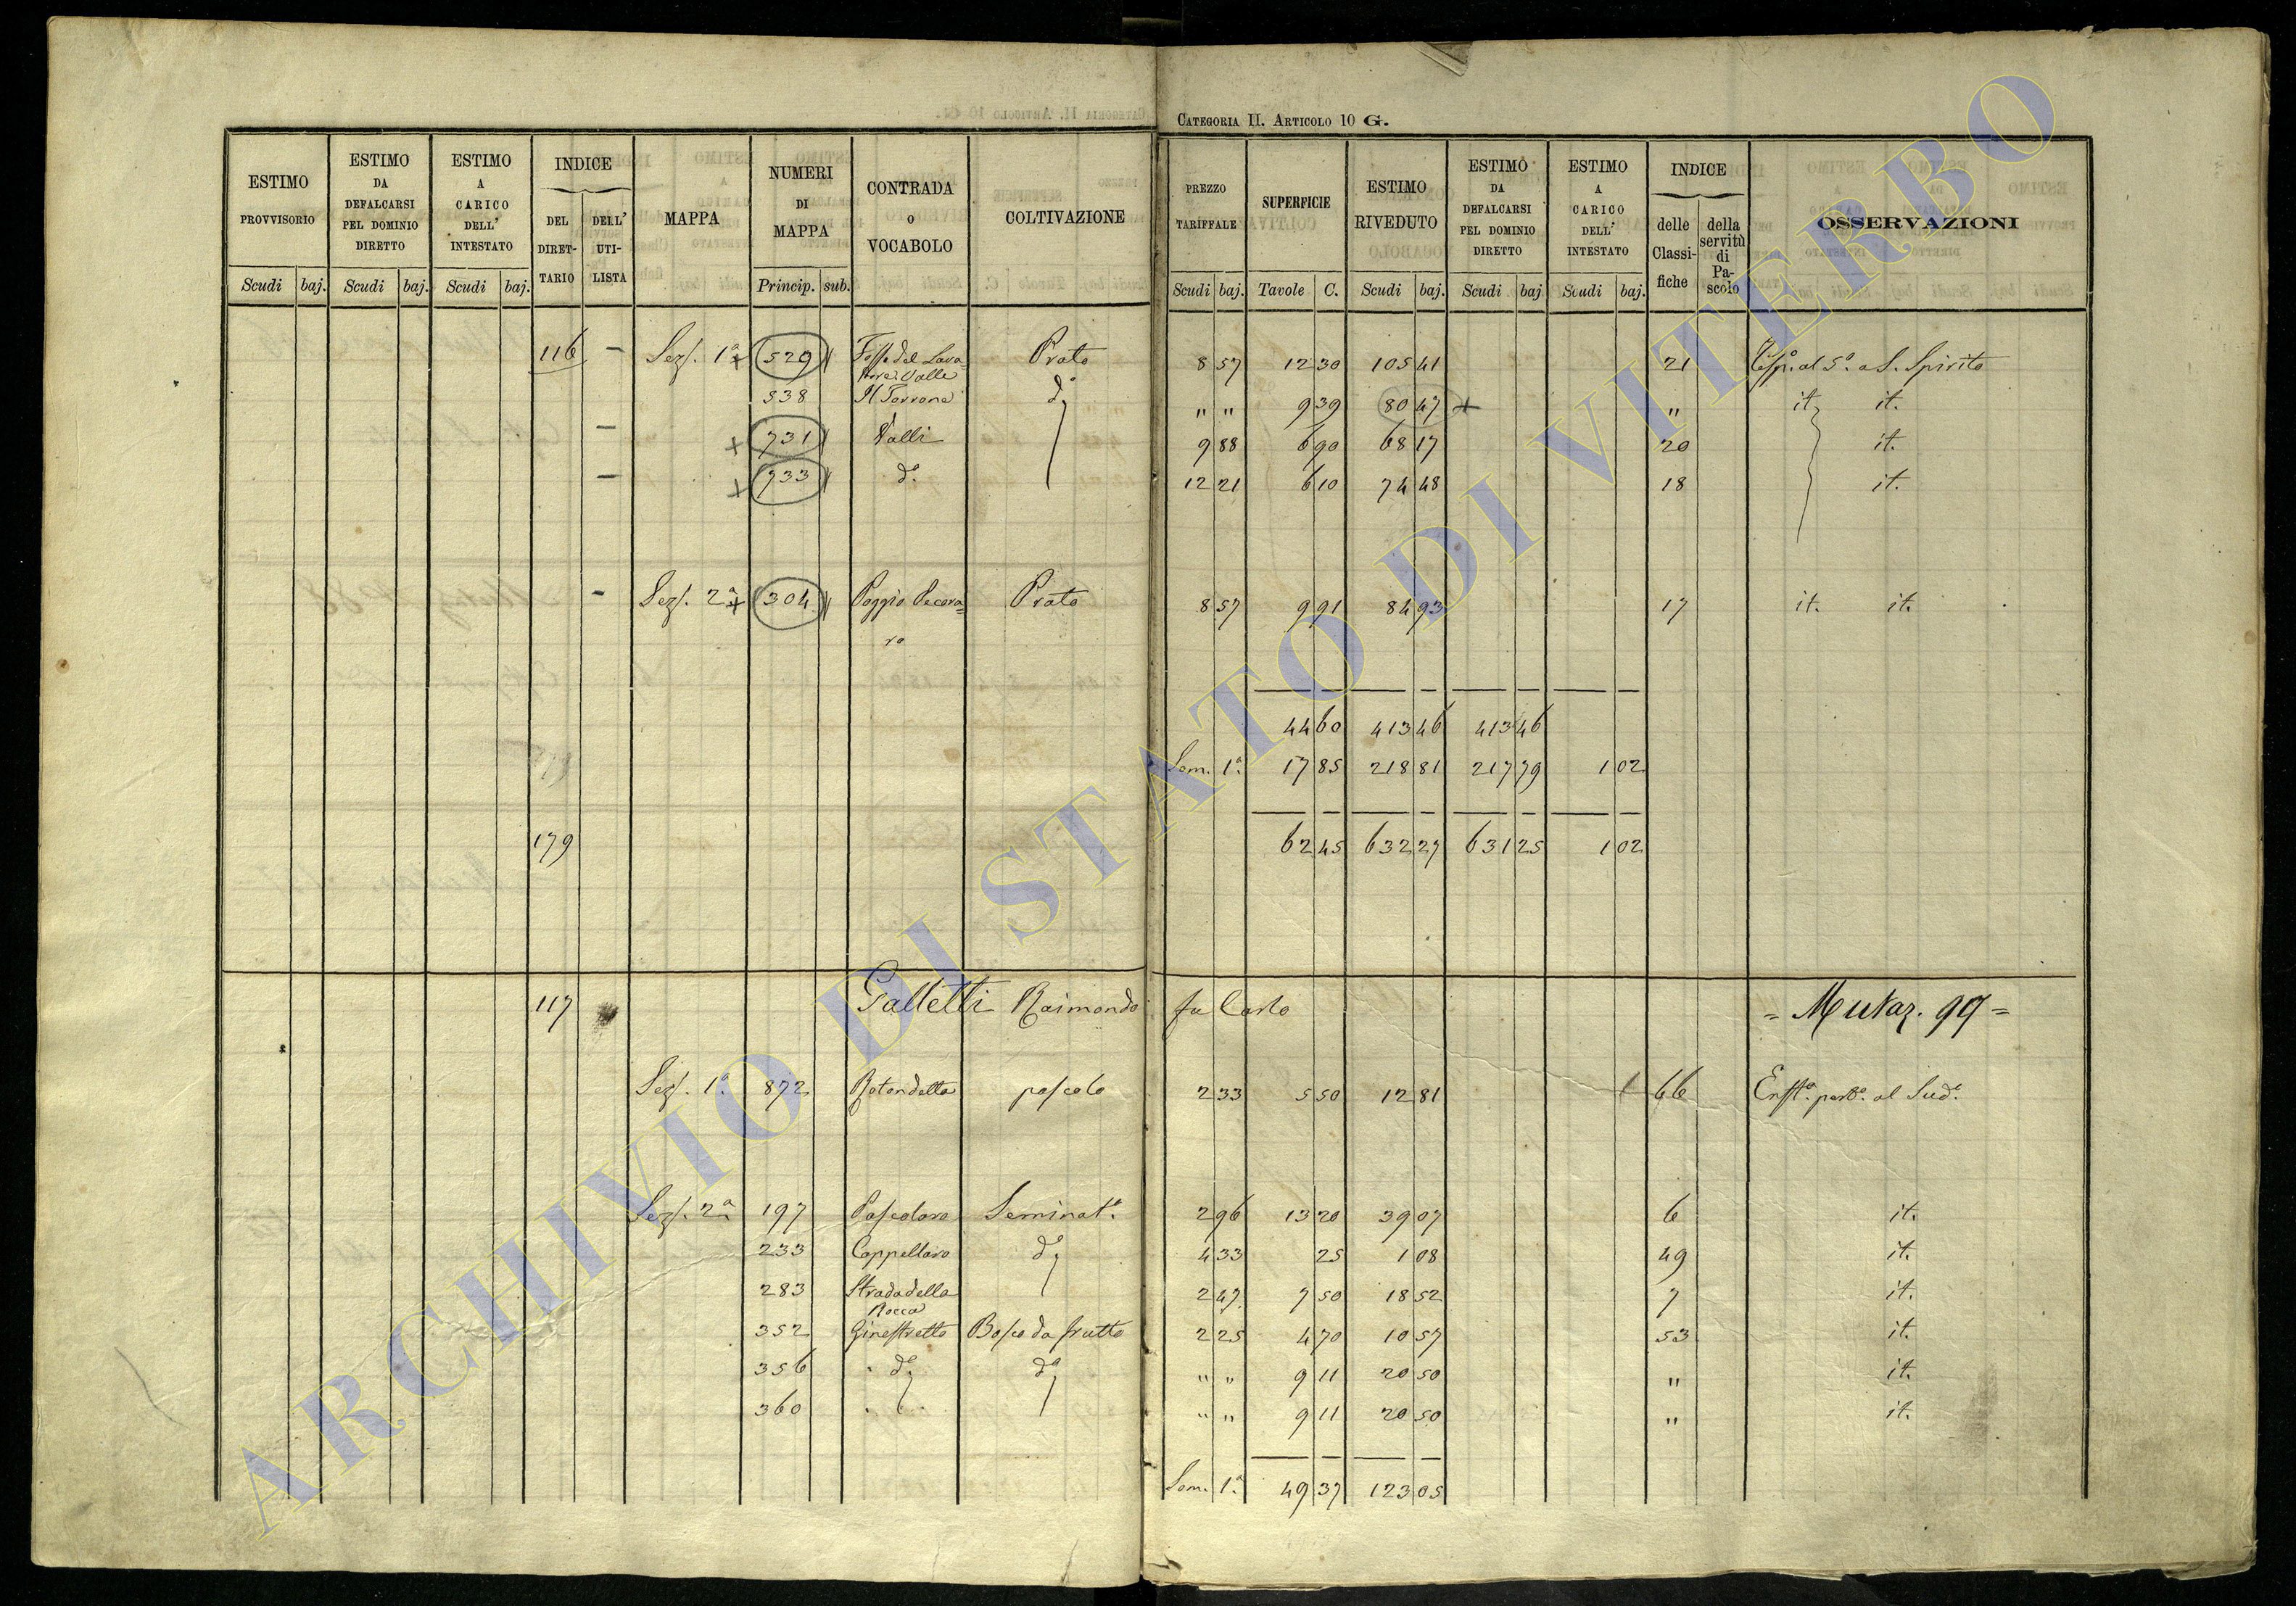 CATEGORIA II. ARTICOLO 10 G.
ESTIMO PROVVISORIO Scudi baj.
ESTIMO DA DEFALCARSI PEL DOMINIO DIRETTO Scudi baj.
ESTIMO A CARICO DELL' INTESTATO Scudi baj.
INDICE DEL DIRETTARIO DELL' UTILISTA
MAPPA
NUMERI DI MAPPA Princip. sub.
CONTRADA O VOCABOLO
COLTIVAZIONE
PREZZO TARIFFALE Scudi baj.
SUPERFICIE Tavole C.
ESTIMO RIVEDUTO Scudi baj.
ESTIMO DA DEFALCARSI PEL DOMINIO DIRETTO Scudi baj
ESTIMO A CARICO DELL' INTESTATO Scudi baj.
INDICE delle Classifiche della servitù di Pascolo
OSSERVAZIONI
116 – Sez. 1ª + 529 Fosso del Lava= Prato 8 57 12 30 105 41 21 al S.º a S. Spirito
Valle
538 Il Torrone dº " " 9 39 80 47 + " it. it.
– + 731 Valli 9 88 6 90 68 17 20 it.
– + 733 dº. 12 21 6 10 74 48 18 it.
– Sez. 2ª + 304 Poggio Pecora= Prato 8 57 9 91 84 93 17 it. it.
ro
44 60 413 46 413 46
Som. 1ª. 17 85 218 81 217 79 1 02
179 62 45 632 27 631 25 1 02
117 Galletti Raimondo fu Carlo = Mutaz. 99 =
Sez. 1ª. 872 Rotondella pascolo 2 33 5 50 12 81 66 Enfª. perpª. al Sudº.
Sez. 2ª. 197 Pascolaro Seminatº. 2 96 13 20 39 07 6 it.
233 Cappellaro dº 4 33 25 1 08 49 it.
283 Strada della 2 47 7 50 18 52 7 it.
Rocca
352 Ginestretto Bosco da frutto 2 25 4 70 10 57 53 it.
356 dº dº " " 9 11 20 50 " it.
360 " " 9 11 20 50 " it.
Som. 1ª. 49 37 123 05
ARCHIVIO DI STATO DI VITERBO